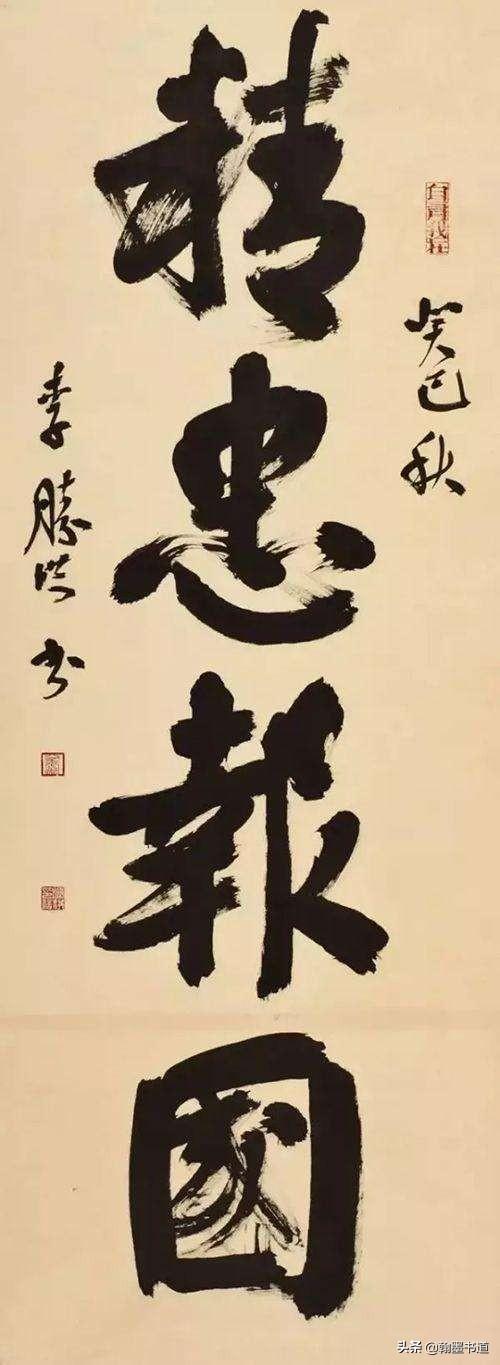 癸巳秋
精忠報國
李勝洪書
头条 @翰墨书道